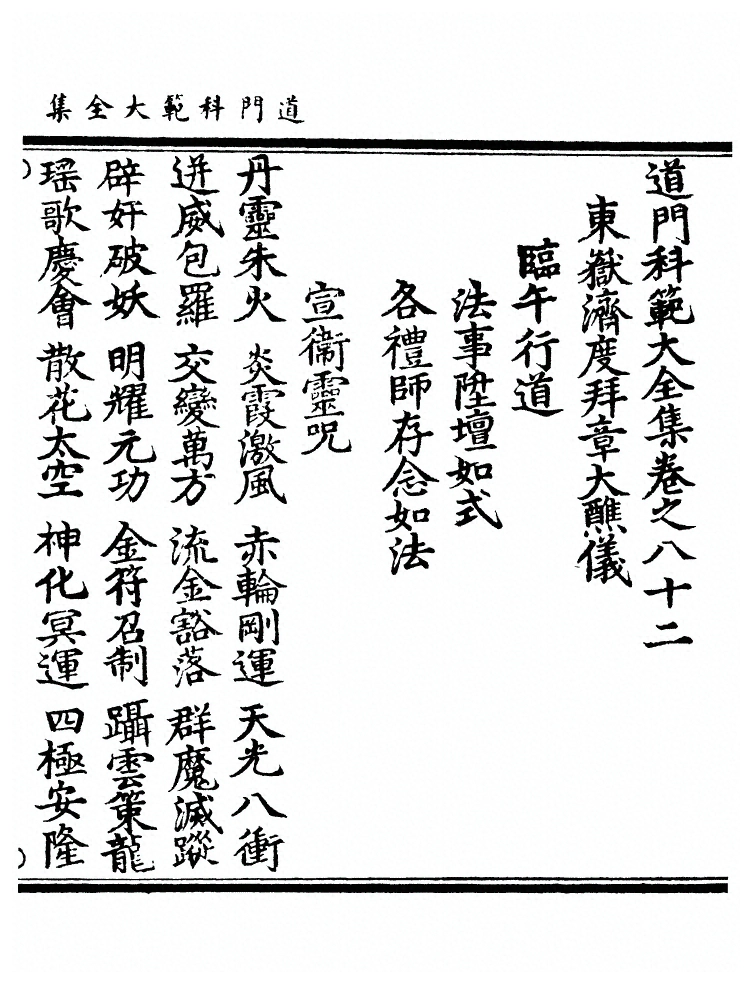 道門科範大全集
道門科範大全集卷之八十二
東嶽濟度拜章大醮儀
臨午行道
法事陞壇如式
各禮師存念如法
宣衞靈呪
丹靈朱火 炎霞激風 赤輪剛運 天光八衝
迸威包羅 交變萬方 流金豁落 群魔滅蹤
辟奸破妖 明耀元功 金符召制 躡雲策龍
瑶歌慶會 散花太空 神化冥運 四極安隆